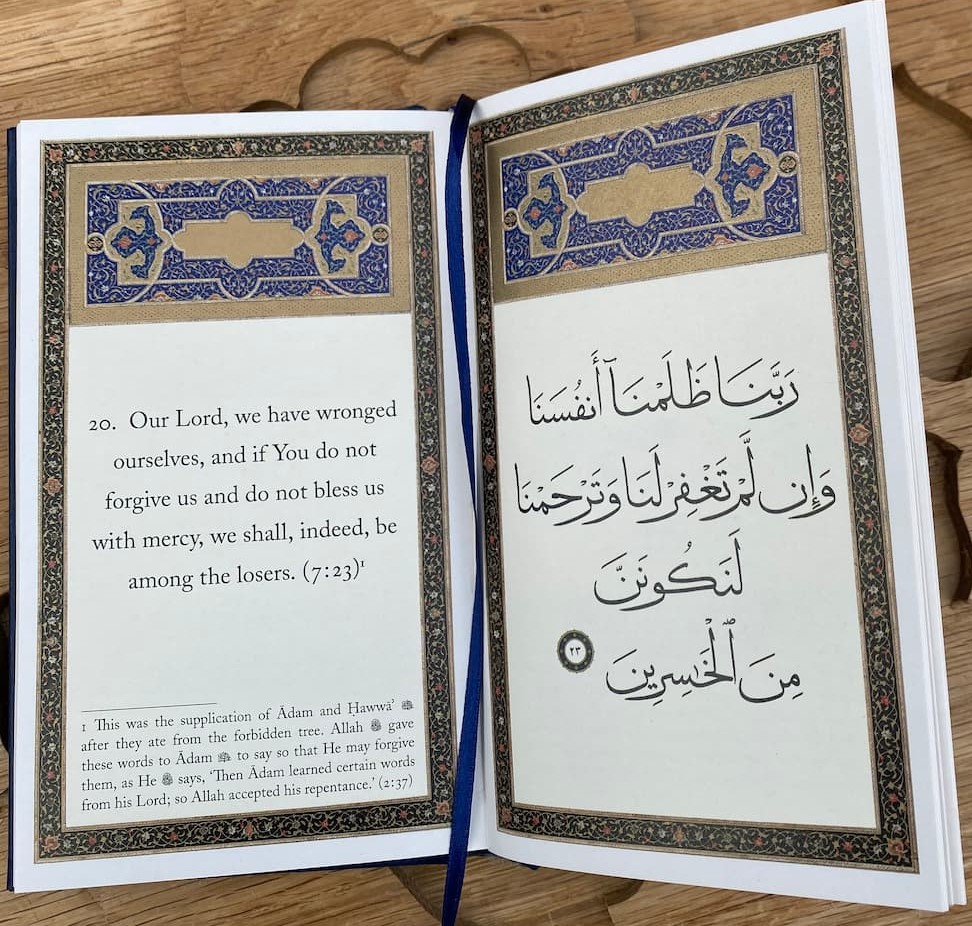 20. Our Lord, we have wronged
ourselves, and if You do not
forgive us and do not bless us
with mercy, we shall, indeed, be
among the losers. (7:23)¹
1 This was the supplication of Ādam and Ḥawwāʾ
after they ate from the forbidden tree. Allah ﷻ gave
these words to Ādam to say so that He may forgive
them, as He ﷻ says, ‘Then Ādam learned certain words
from his Lord; so Allah accepted his repentance.’ (2:37)
رَبَّنَا ظَلَمْنَآ أَنفُسَنَا
وَإِن لَّمْ تَغْفِرْ لَنَا وَتَرْحَمْنَا
لَنَكُونَنَّ
مِنَ ٱلْخَٰسِرِينَ ٢٣